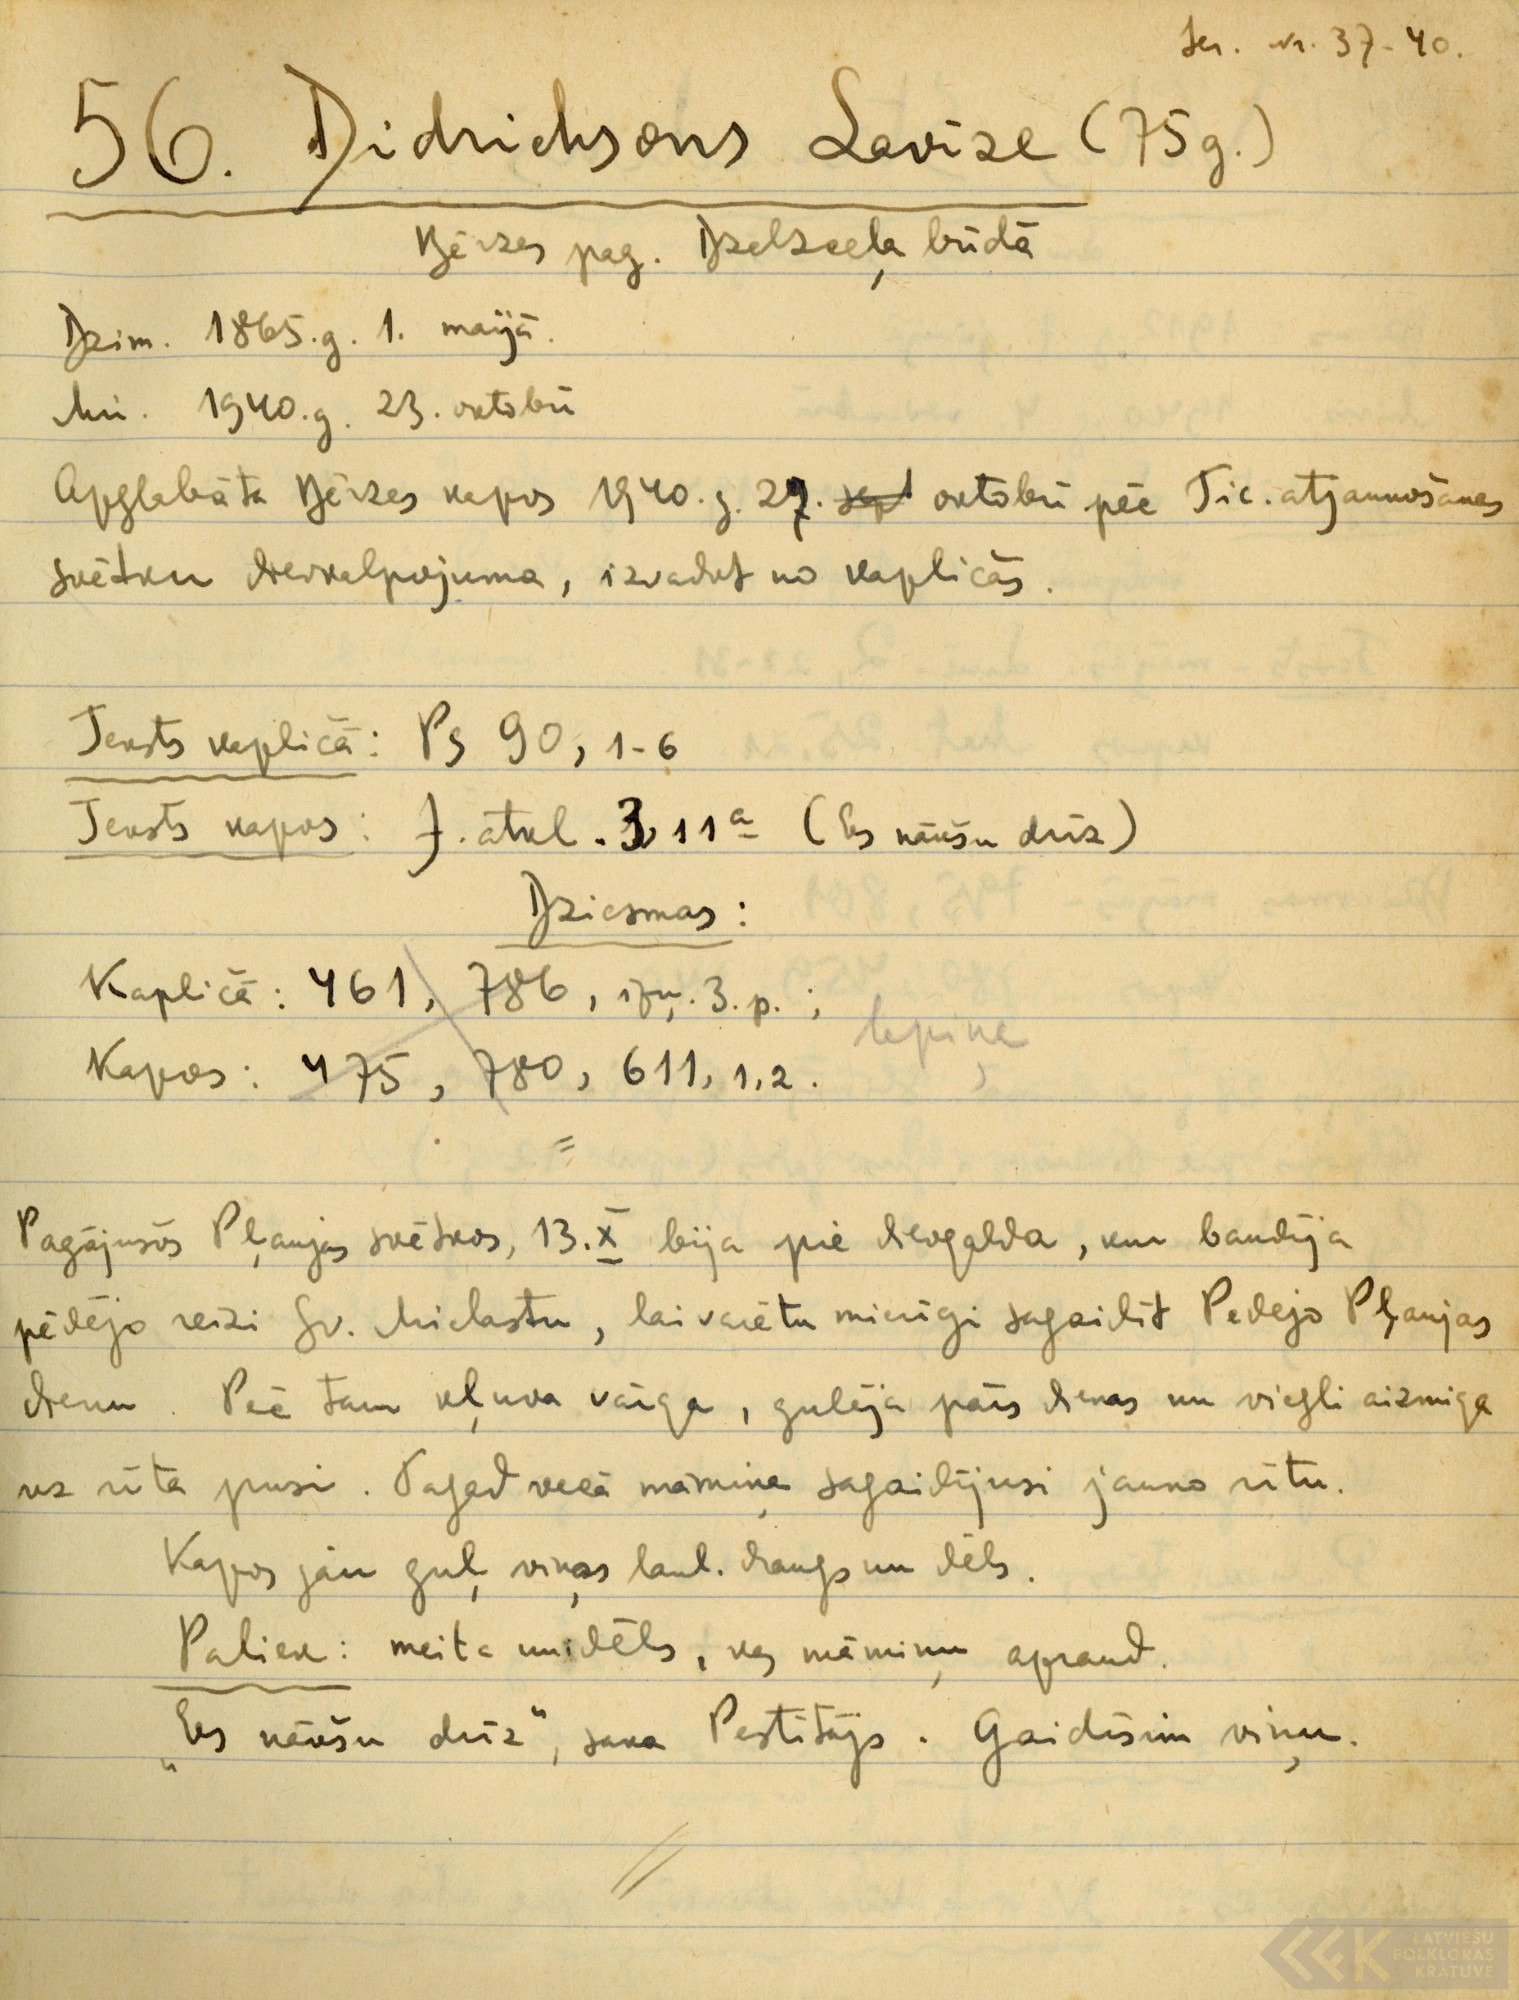 Ser. nr. 37-40.
56. Didrichsons Lavīze (75g.)
Bērzes pag. Dzelzceļa būdā
Dzim. 1865.g. 1. maijā.
Mir. 1940.g. 23. oktobrī
Apglabāta Bērzes kapos 1940.g. 27. sept oktobrī pēc Tic. atjaunošanas
svētku dievkalpojuma, izvadot no kapličas.
Teksts kapličā: Ps 90, 1-6
Teksts kapos: J. atkl. 3, 11a (Es nākšu drīz)
Dziesmas:
Kapličā: 461, 786, izņ. 3. p. ;
Kapos: 475, 780, 611, 1,2.
lapiņa
=
Pagājušos Pļaujas svētkos, 13.X bija pie dievgalda, kur baudīja
pēdējo reizi Sv. Mielastu, lai varētu mierīgi sagaidīt Pēdējo Pļaujas
dienu. Pēc tam kļuva vārga, gulēja pāris dienas un viegli aizmiga
uz rīta pusi. Tagad vecā māmiņa sagaidījusi jauno rītu.
Kapos jau guļ viņas laul. draugs un dēls.
Paliek: meita un dēls, kas māmiņu apraud.
"Es nākšu drīz", saka Pestītājs. Gaidīsim viņu.
LATVIEŠU
FOLKLORAS
KRĀTUVE